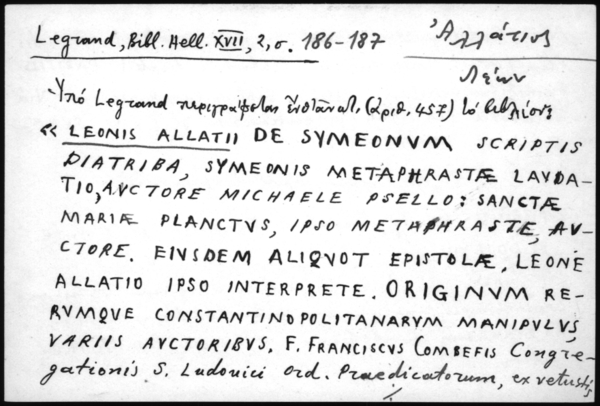 Legrand, Bibl. Hell. XVII, 2, σ. 186-187
Ἀλλάτιος
Λέων
Ὑπό Legrand περιγράφεται (ἀριθ. 457) τό βιβλίον:
« LEONIS ALLATII DE SYMEONVM SCRIPTIS
DIATRIBA, SYMEONIS METAPHRASTÆ LAVDA-
TIO, AVCTORE MICHAELE PSELLO: SANCTÆ
MARIÆ PLANCTVS, IPSO METAPHRASTE, AV-
CTORE. EIVSDEM ALIQVOT EPISTOLÆ, LEONE
ALLATIO IPSO INTERPRETE. ORIGINVM RE-
RVMQVE CONSTANTINOPOLITANARVM MANIPVLVS,
VARIIS AVCTORIBVS. F. FRANCISCVS COMBEFIS Congre-
gationis S. Ludovici ord. Praedicatorum, ex vetustis